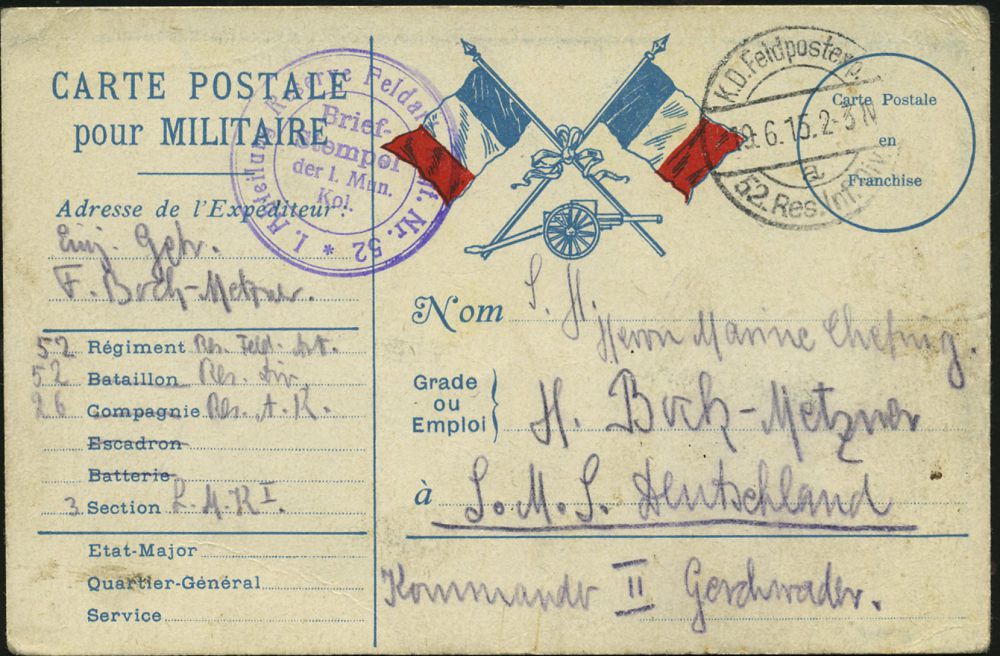 CARTE POSTALE
pour MILITAIRE
Adresse de l'Expéditeur:
Einj. Gefr.
F. Bock-Metzner.
52 Régiment Res. Feld. Art.
52 Bataillon Res. Div.
26 Compagnie Res. A. K.
Escadron
Batterie
3. Section L. M. K I.
Etat-Major
Quartier-Général
Service
I. Abteilung Reserve Feldart. Nr. 52 *
Brief-
Stempel
der l. Mun.
Kol.
K.D. Feldpostexp.
19.6.15. 2-3 N
a
52. Res. Inf. Div.
Carte Postale
en
Franchise
Nom S. H.
Herrn Marine
Grade
ou
Emploi
H. Bock-Metzner
à S. M. S. Deutschland
Kommando II Geschwader.